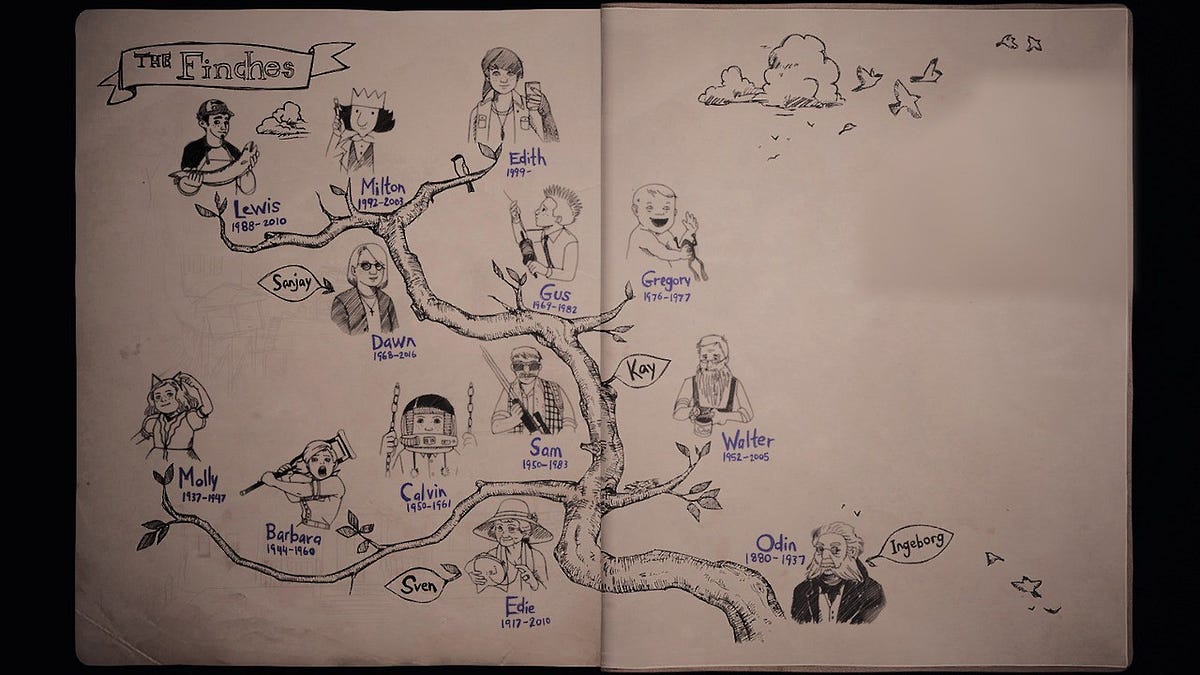 THE Finches
Lewis
1988-2010
Milton
1992-2003
Edith
1999-
Sanjay
Dawn
1968-2016
Gus
1969-1982
Gregory
1976-1977
Kay
Molly
1937-1947
Barbara
1944-1960
Calvin
1950-1961
Sam
1950-1983
Walter
1952-2005
Sven
Edie
1917-2010
Odin
1880-1937
Ingeborg